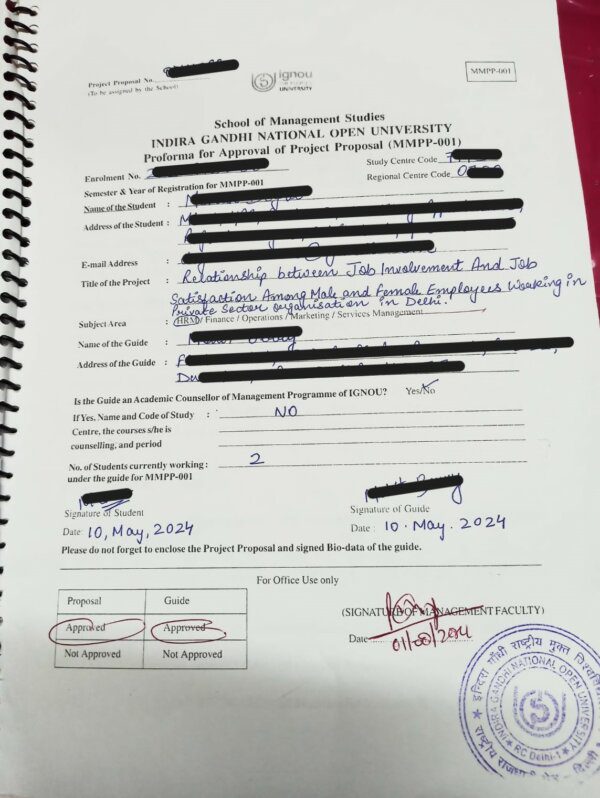 Project Proposal No.
(To be assigned by the School)
ignou
UNIVERSITY
MMPP-001
School of Management Studies
INDIRA GANDHI NATIONAL OPEN UNIVERSITY
Proforma for Approval of Project Proposal (MMPP-001)
Enrolment No.
Study Centre Code
Semester & Year of Registration for MMPP-001
Regional Centre Code
Name of the Student :
Address of the Student :
E-mail Address :
Title of the Project : Relationship between Job Involvement And Job
Satisfaction Among Male and Female Employees Working in
Private Sector organisation in Delhi.
Subject Area : HRM / Finance / Operations / Marketing / Services Management
Name of the Guide :
Address of the Guide :
Is the Guide an Academic Counsellor of Management Programme of IGNOU? Yes/No
If Yes, Name and Code of Study : NO
Centre, the courses s/he is
counselling, and period
No. of Students currently working : 2
under the guide for MMPP-001
Signature of Student
Signature of Guide
Date: 10, May, 2024
Date : 10. May. 2024
Please do not forget to enclose the Project Proposal and signed Bio-data of the guide.
For Office Use only
Proposal Guide
Approved Approved
Not Approved Not Approved
(SIGNATURE OF MANAGEMENT FACULTY)
Date
इन्दिरा गाँधी राष्ट्रीय मुक्त
INDIRA GANDHI NATIONAL OPEN UNIVERSITY
RC Delhi-1